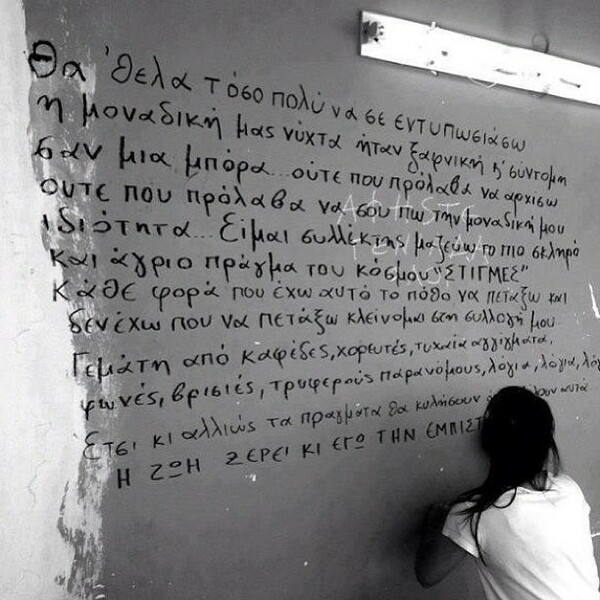 Θα 'θελα τόσο πολύ να σε εντυπωσιάσω
η μοναδική μας νύχτα ήταν ξαφνική κ' σύντομη
σαν μια μπόρα... ούτε που πρόλαβα να αρχίσω
ούτε που πρόλαβα να σου πω την μοναδική μου
ιδιότητα... Είμαι συλλέκτης μαζεύω το πιο σκληρό
και άγριο πράγμα του κόσμου "ΣΤΙΓΜΕΣ"
Κάθε φορά που έχω αυτό το πόθο να πετάξω και
δεν έχω που να πετάξω κλείνομαι στη συλλογή μου
Γεμάτη από καφέδες, χορευτές, τυχαία αγγίγματα,
φωνές, βρισιές, τρυφερούς παρανόμους, λόγια, λόγια,
Έτσι κι αλλιώς τα πράγματα θα κυλήσουν αυτά
Η ΖΩΗ ΞΕΡΕΙ ΚΙ ΕΓΩ ΤΗΝ